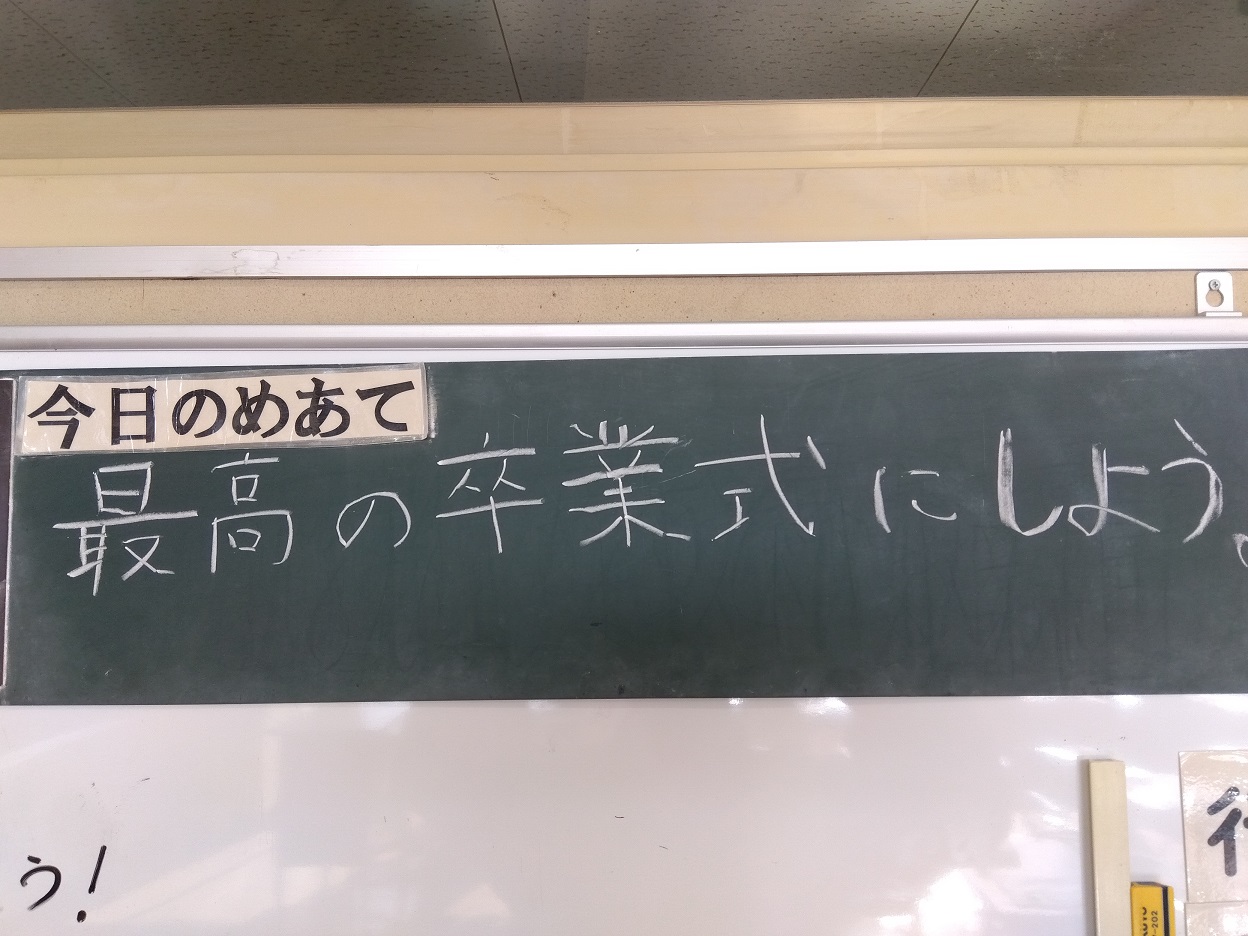 今日のめあて
最高の卒業式にしよう。
う!
-202